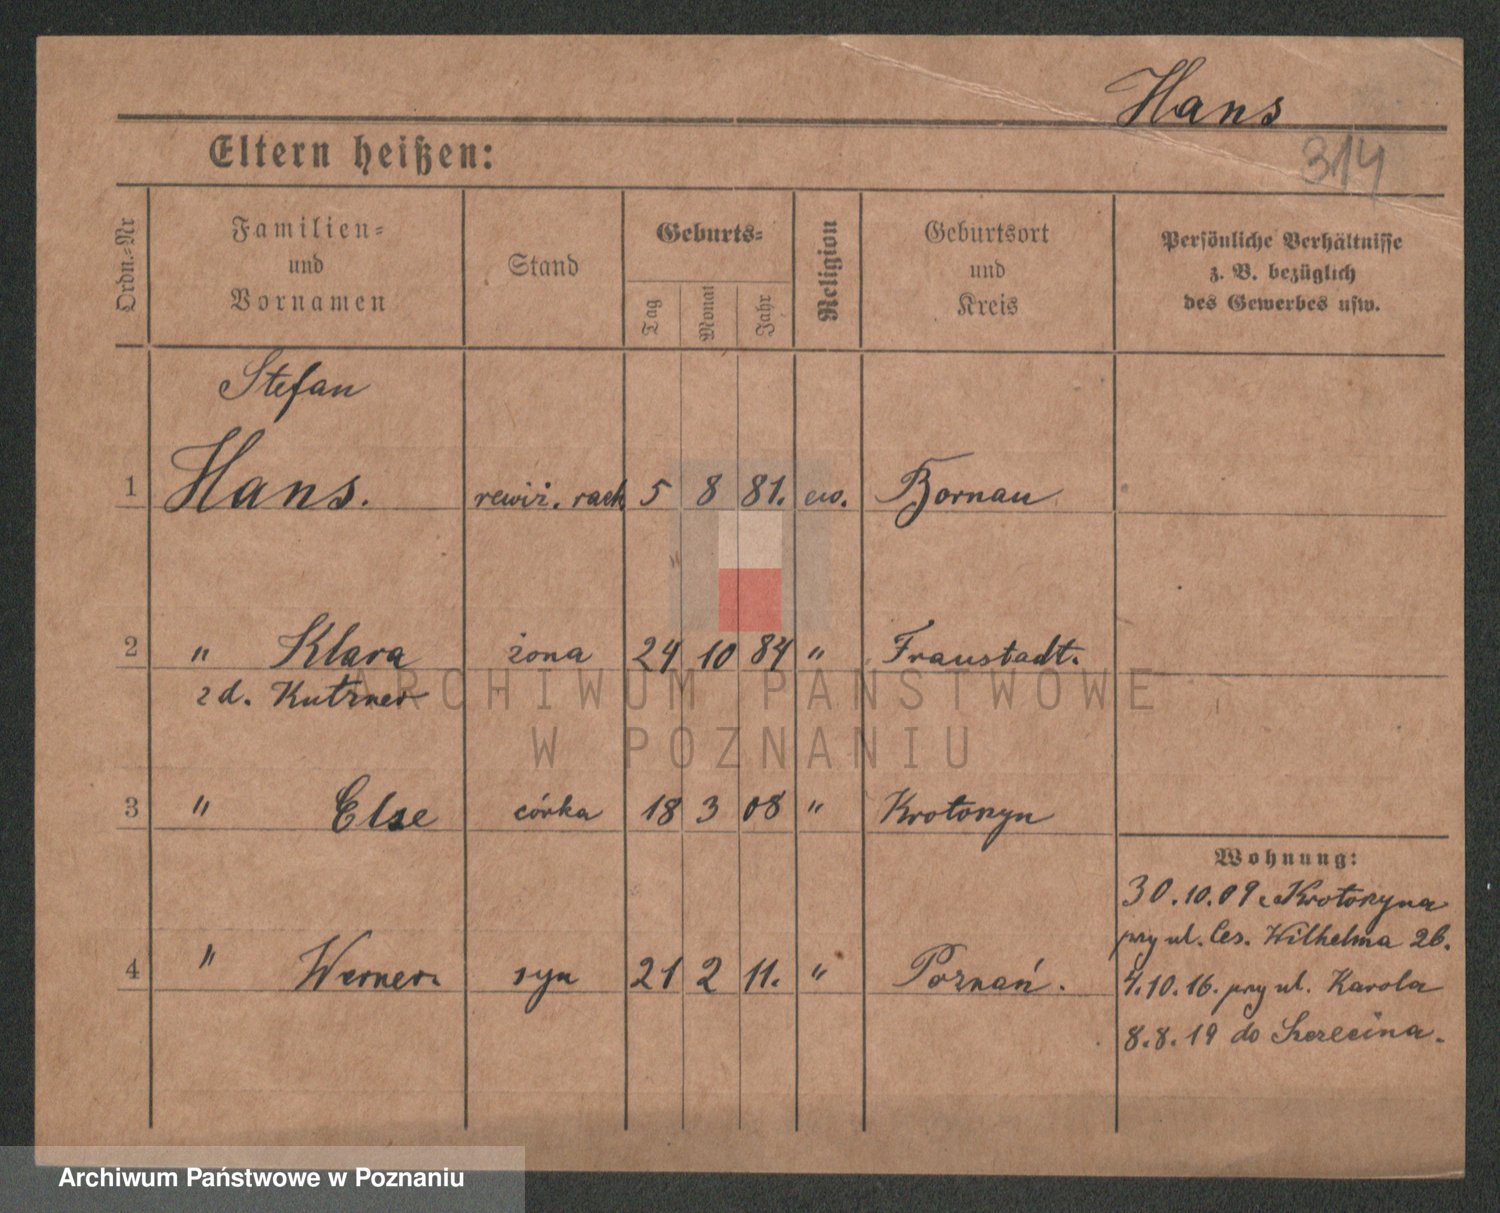 Hans
314
Eltern heißen:
Ordn.=Nr
Familien=
und
Vornamen
Stand
Geburts=
Tag
Monat
Jahr
Religion
Geburtsort
und
Kreis
Persönliche Verhältnisse
z. B. bezüglich
des Gewerbes usw.
Stefan
1 Hans. rewiz. rach. 5 8 81. ew. Bornau
2 " Klara żona 24 10 84 " Fraustadt.
z d. Kutzner
3 " Else córka 18 3 08 " Krotoszyn
Wohnung:
30.10.09 z Krotoszyna
przy ul. Ces. Wilhelma 26.
4 " Werner. syn 21 2 11. " Poznań.
4.10.16. przy ul. Karola
8.8.19 do Szczecina.
ARCHIWUM PAŃSTWOWE
W POZNANIU
Archiwum Państwowe w Poznaniu